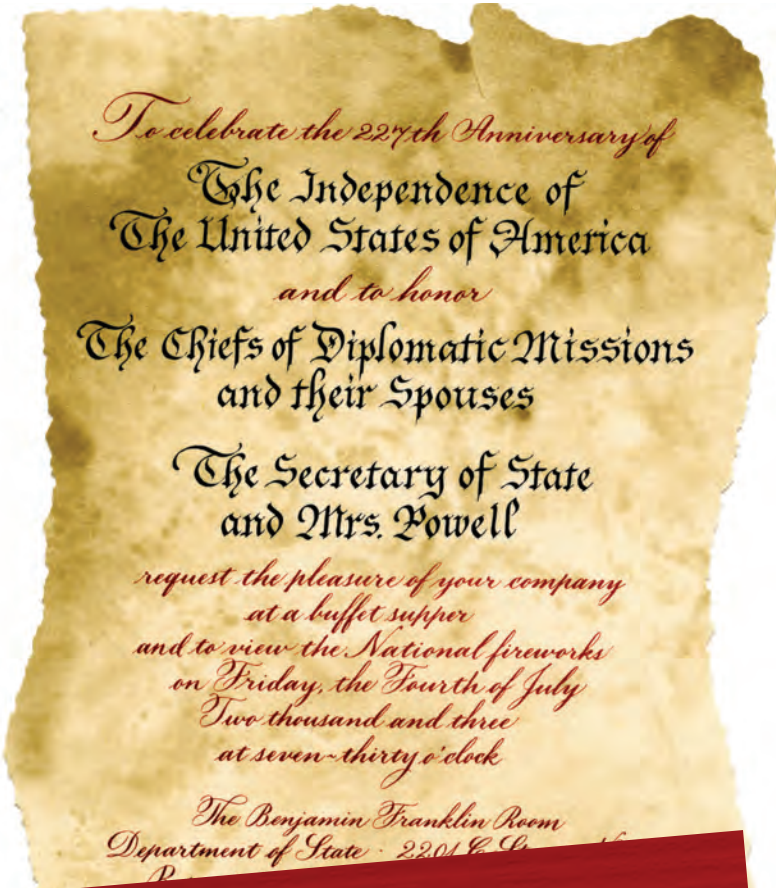 To celebrate the 227th Anniversary of
The Independence of
The United States of America
and to honor
The Chiefs of Diplomatic Missions
and their Spouses
The Secretary of State
and Mrs. Powell
request the pleasure of your company
at a buffet supper
and to view the National fireworks
on Friday, the Fourth of July
Two thousand and three
at seven-thirty o'clock
The Benjamin Franklin Room
Department of State · 2201 C